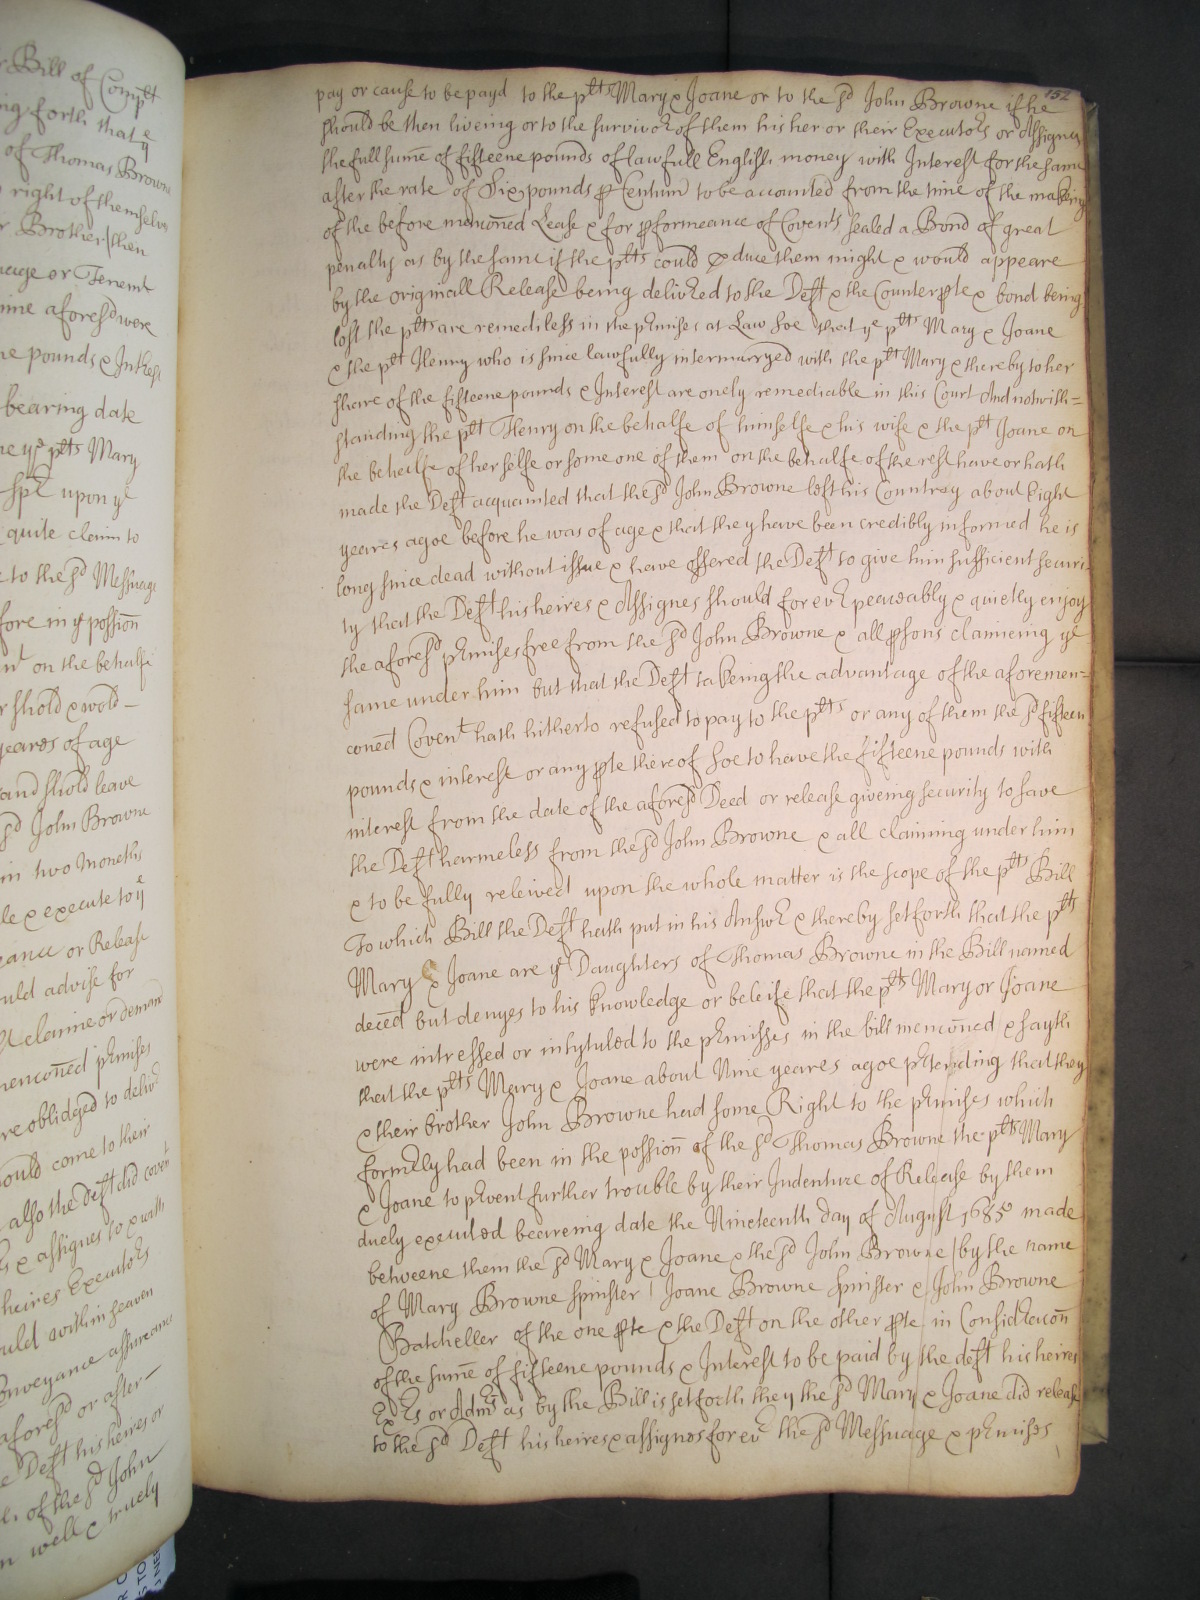 r Bill of Compt
ing forth that ye
of Thomas Browne
right of themselves
r Brother (then
uage or Tenemt
ime aforesd were
ne pounds & Interest
bearing date
ne ye plts Mary
upon ye
quite claim to
e to the sd Messuage
fore in ye possion
on the behalfe
r shold & wold
yeares of age
and shold leave
sd John Browne
in two Moneths
le & execute to ye
eance or Release
uld advise for
claime or demand
menconed premises
re obliged to deliver
ould come to their
also the deft did covent
s & assignes to & with
heires Executors
uld within seaven
onveyance assurance
aforesd or after
e Deft his heires or
of the sd John
n well & truely
152
pay or cause to be payd to the plts Mary & Joane or to the sd John Browne if he
should be then liveing or to the survivor of them his her or their Executors or Assignes
the full sume of fifteene pounds of lawfull English money with Interest for the same
after the rate of Six pounds p Centum to be accounted from the time of the making
of the before mencioned Lease & for pformeance of Covents sealed a Bond of great
penalty as by the same if the plts could pduce them might & would appeare
by the originall Release being delivred to the Deft & the Counterpte & bond being
lost the plts are remediless in the premises at Law soe that ye plts Mary & Joane
& the plt Henry who is since lawfully intermarryed with the plt Mary & thereby to her
share of the fifteene pounds & Interest are onely remediable in this Court And notwith=
standing the plt Henry on the behalfe of himselfe & his wife & the plt Joane on
the behalfe of her selfe or some one of them on the behalfe of the rest have or hath
made the Deft acquainted that the sd John Browne left his Countrey about Eight
yeares agoe before he was of age & that they have been credibly informed he is
long since dead without issue & have offered the Deft to give him sufficient securi-
ty that the Deft his heires & Assignes should for evr peaceably & quietly enjoy
the aforesd premises free from the sd John Browne & all psons claimeing ye
same under him but that the Deft takeing the advantage of the aforemen=
coned Covent hath hitherto refused to pay to the plts or any of them the sd fifteen
pounds & interest or any pte thereof soe to have the fifteene pounds with
interest from the date of the aforesd Deed or release giveing security to save
the Deft harmeless from the sd John Browne & all claiming under him
& to be fully releived upon the whole matter is the scope of the plts Bill
To which Bill the Deft hath put in his Answer & thereby set forth that the plts
Mary & Joane are ye Daughters of Thomas Browne in the Bill named
deced but denyes to his knowledge or beleife that the plts Mary or Joane
were intressed or intytuled to the premisses in the bill mencioned & sayth
that the plts Mary & Joane about Nine yeares agoe pretending that they
& their brother John Browne had some Right to the premises which
formerly had been in the possion of the sd Thomas Browne the plts Mary
& Joane to prevent further trouble by their Indenture of Release by them
duely executed beareing date the Nineteenth day of August 1685 made
betweene them the sd Mary & Joane & the sd John Browne (by the name
of Mary Browne spinster Joane Browne spinster & John Browne
Batcheller of the one pte & the Deft on the other pte in Considracon
of the sume of fifteene pounds & Interest to be paid by the deft his heires
Exrs or Adms as by the Bill is set forth they the sd Mary & Joane did release
to the sd Deft his heires & assignes for evr the sd Messuage & premises